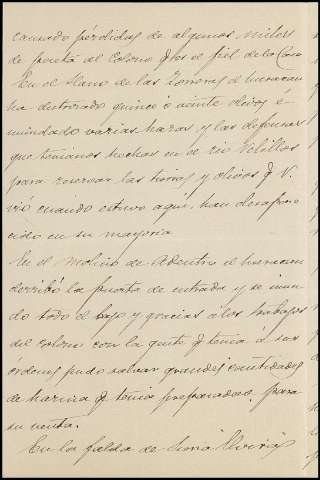 causado pérdidas de algunos miles
de pesetas al Colono
En el Llano de las Zorreras el huracan
ha destrozado quince o veinte olivos é
inundado varias hazas y las defensas
que teniamos hechas en el rio Velillos
para reservar las tierras y olivos q V.
vió cuando estuvo aqui, han desapare
cido en su mayoria
En el Molino de Adentro el huracan
derribó la puerta de entrada y se inun
do todo el bajo y gracias á los trabajos
del colono con la gente q tenia á sus
órdenes pudo salvar grandes cantidades
de harina q tenia preparadas para
su venta.
En la falda de Sierra Elvira